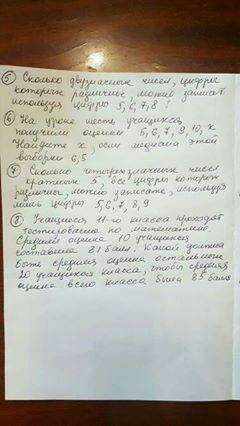 ⑤ Сколько двузначных чисел, цифры
которых различные, можно записать
используя цифры 5, 6, 7, 8?
⑥ На уроке шесть учащихся
получили оценки 5, 6, 7, 9, 10, х
Найдите х, если медиана этой
выборки 6,5
⑦ Сколько четырехзначных чисел
кратных 5, все цифры которых
различны, можно записать, используя
лишь цифры 5, 6, 7, 8, 9
⑧ Учащиеся 11-го класса проходят
тестирование по математике
Средняя оценка 10 учащихся
составила 81 балл. Какой должна
быть средняя оценка остальных
20 учащихся класса, чтобы средняя
оценка всего класса была 85 балл